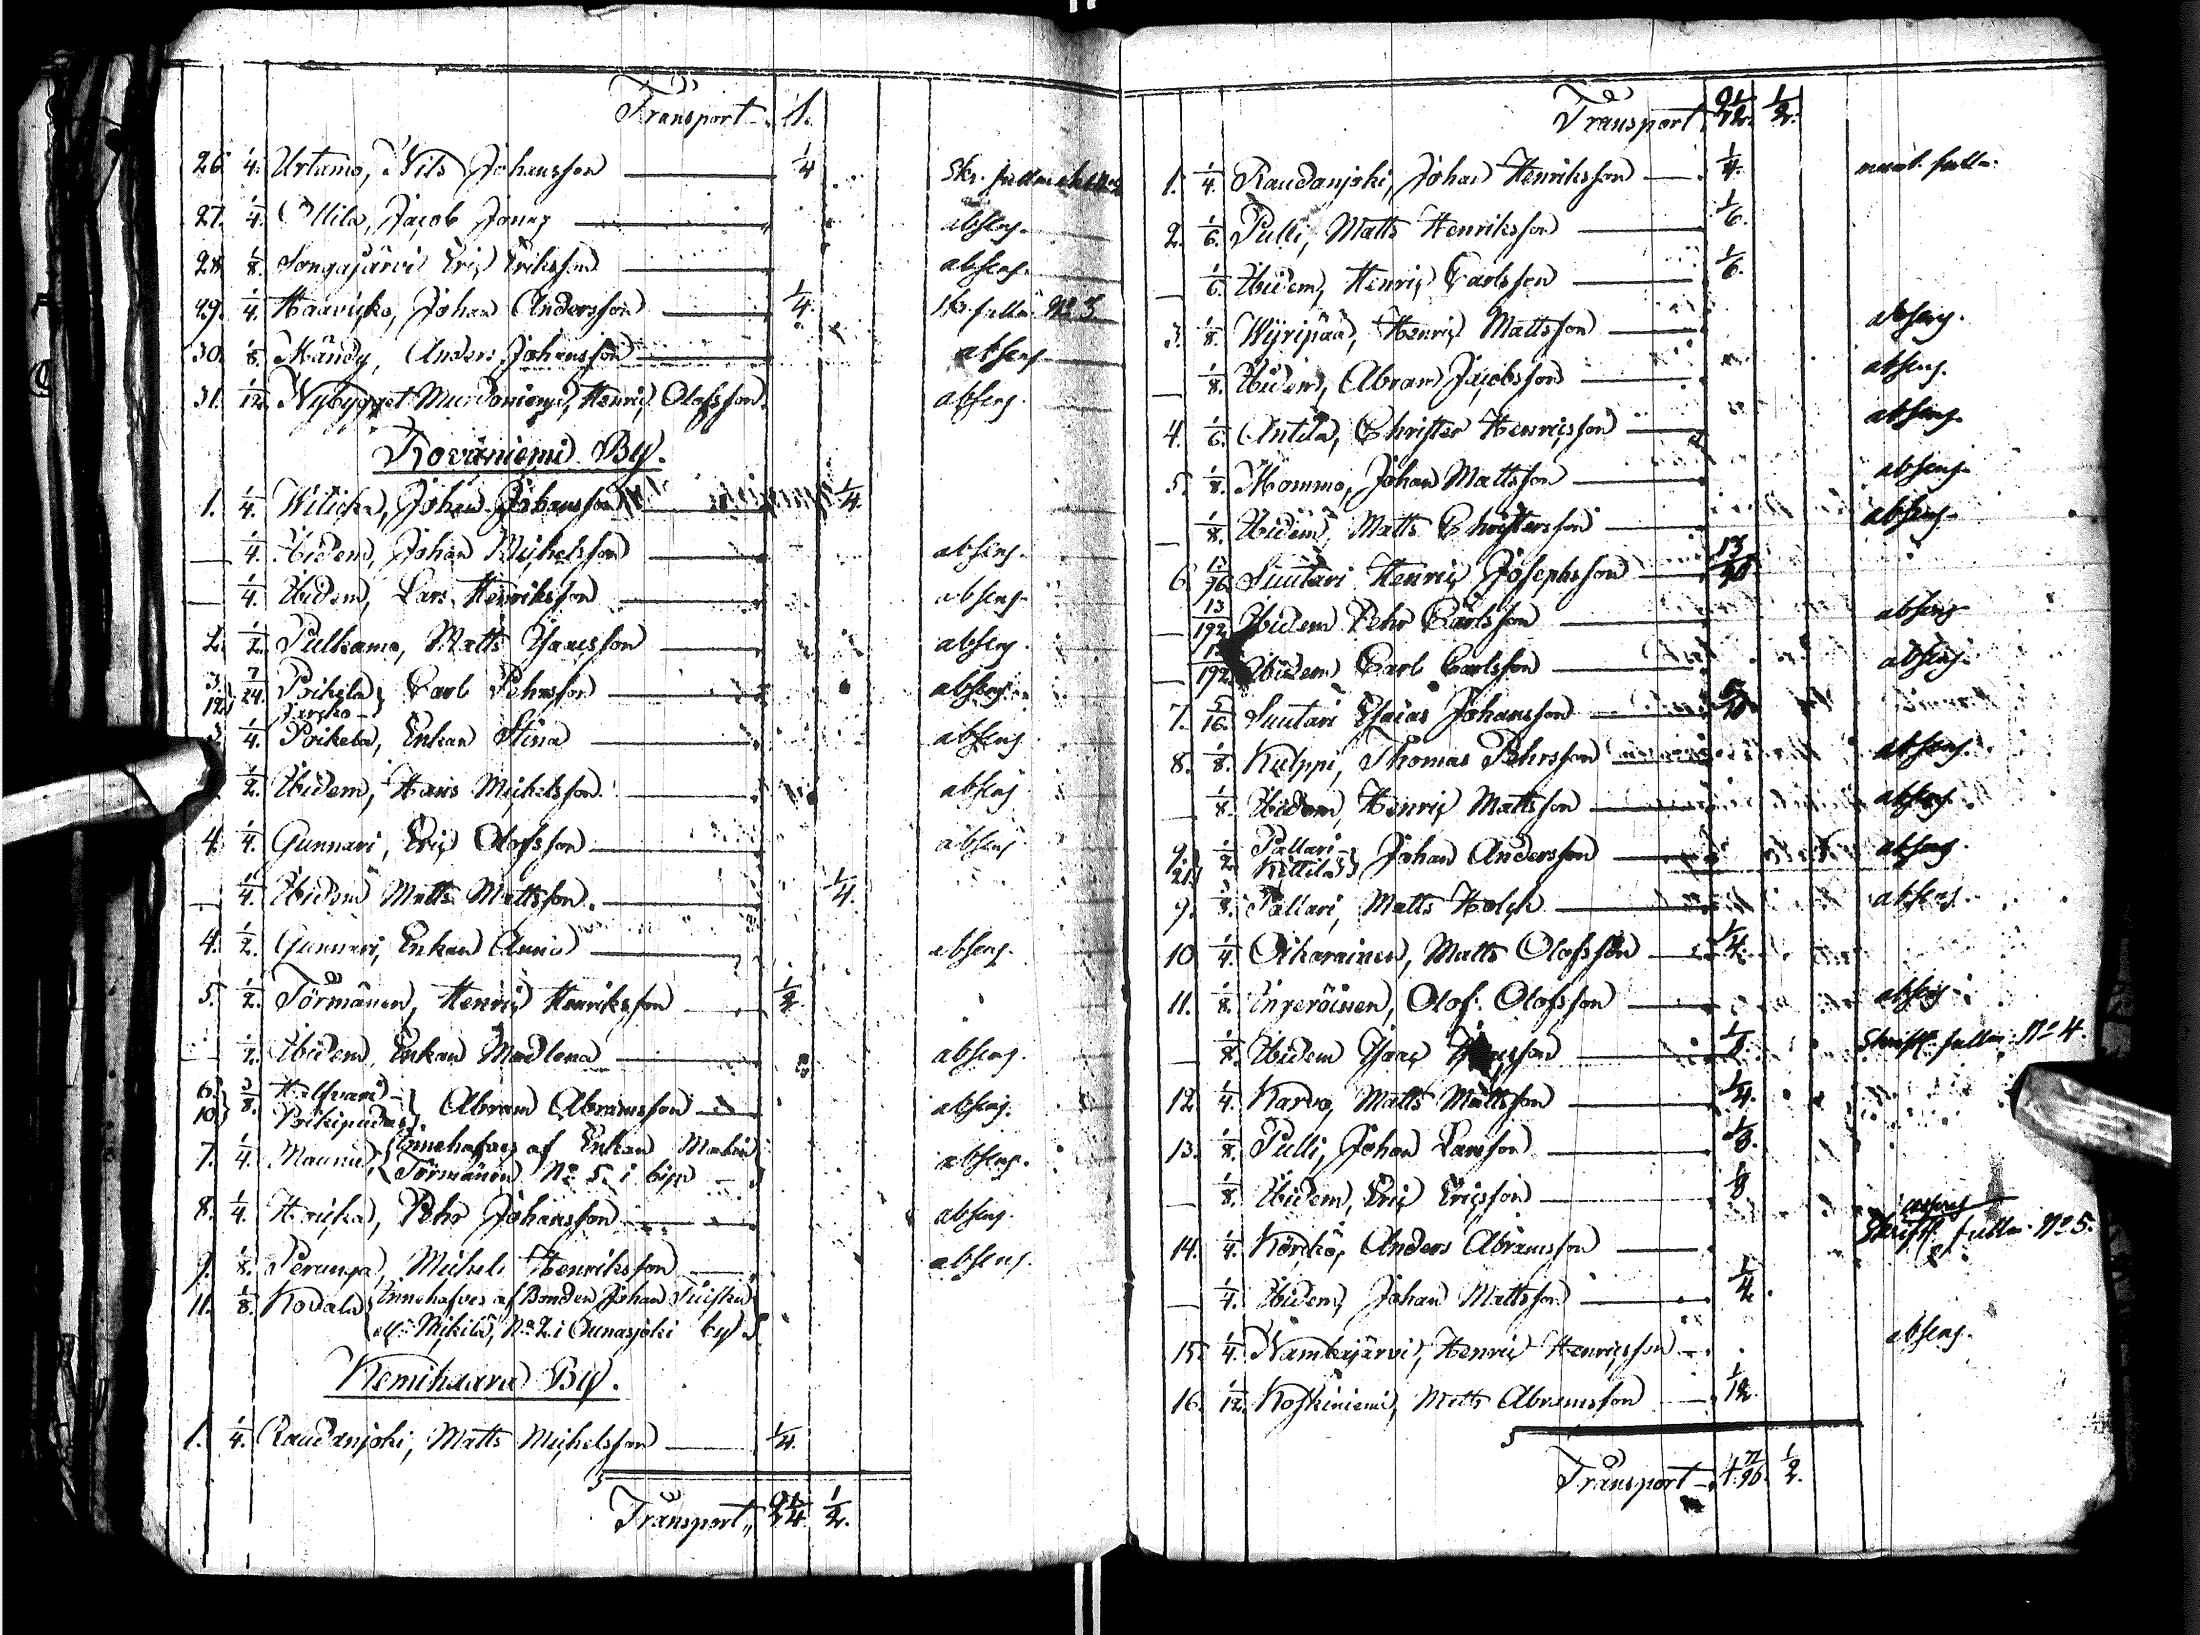 Transport 1.
26. 1/4. Urtamo, Nils Johansson 1/4 Skr. fullm
27. 1/4. Ollila, Jacob absens.
28. 1/8. Songajärvi Eric Eriksson absens.
29. 1/4. Haavicko, Johan Andersson 1/4. skr. fullm. No 3.
30. 1/8. Mändy, Anders Johansson absens.
31. 1/12. Nybygget Henric Olofsson. absens.
Rovaniemi By.
1. 1/4. Wilicka, Johan Johansson 1/4.
— 1/4. Ibidem, Johan Michelsson absens.
— 1/4. Ibidem, Lars Henriksson absens.
2. 1/2. Pulkamo, Matts Isacsson absens.
3. 12.} 7/24. Poikela Jaescko } Carl Pehrsson absens.
3. 1/4. Poikela, Enkan Stina absens.
1/2. Ibidem, Hans Michelsson. absens.
4. 1/4. Gunnari, Eric Olofsson absens.
— 1/4. Ibidem Matts Mattsson. 1/4.
4. 1/2. Gunnari, Enkan Anna absens.
5. 1/2. Törmänen, Henric Henriksson 1/2.
— 1/2. Ibidem Enkan Madlena absens.
6. 10.} 3/8. Halfvari Poikipudas } Abram Abramsson absens.
7. 1/4. Maunu, { Innehafves af Enkan Malin
Törmänen No 5. i byn absens.
8. 1/4. Haicka, Pehr Johansson absens.
9. 1/8. Perunga, Michel Henriksson absens.
11. 1/8. Kodala { Innehafves af Bonden Johan Tuisku
ell. Mikila, No 2. i Ounasjoki by
Kemihaara By.
1. 1/4. Raudanjoki, Matts Michelsson 1/4.
Transport 2 1/4. 1/2.
Transport 2 1/4. 1/2.
1. 1/4. Raudanjoki, Johan Henriksson 1/4. munt. fullm.
2. 1/6. Pulli, Matts Henriksson 1/6.
— 1/6. Ibidem, Henric Carlsson 1/6.
3. 1/8. Wijripää, Henric Mattsson absens.
— 1/8. Ibidem, Abram Jacobsson absens.
4. 1/6. Antila, Christer Henricsson absens.
5. 1/8. Mommo, Johan Mattsson absens.
— 1/8. Ibidem, Matts Christersson absens.
6. 13/96. Suutari Henric Josephsson 13/96.
— 13/192. Ibidem Pehr Carlsson absens.
— 13/192. Ibidem Carl Carlsson absens.
7. 5/16. Suutari Esaias Johansson 5/16.
8. 1/8. Kulppi, Thomas Pehrsson absens.
— 1/8. Ibidem, Henric Mattsson absens.
9. 21.} 1/2 Pallari Kittilä } Johan Andersson absens.
9. 1/8. Pallari, Matts Holck absens.
10. 1/4. Oikarainen, Matts Olofsson 1/4.
11. 1/8. Ingeröinen, Olof Olofsson absens.
— 1/8. Ibidem Isac 1/8. Skriftl. fullm. No 4.
12. 1/4. Karvo, Matts Mattsson 1/4.
13. 1/8. Pulli, Johan Larsson 1/8.
— 1/8. Ibidem, Eric Ericsson 1/8
absens
14. 1/4. Körckö, Anders Abramsson Skriftl. fullm. No 5.
— 1/4. Ibidem, Johan Mattsson 1/4.
15. 1/4. Nambajärvi, Henric Henricsson absens.
16. 1/12. Koskiniemi, Matts Abramsson 1/12.
Transport 4 71/96. 1/2.